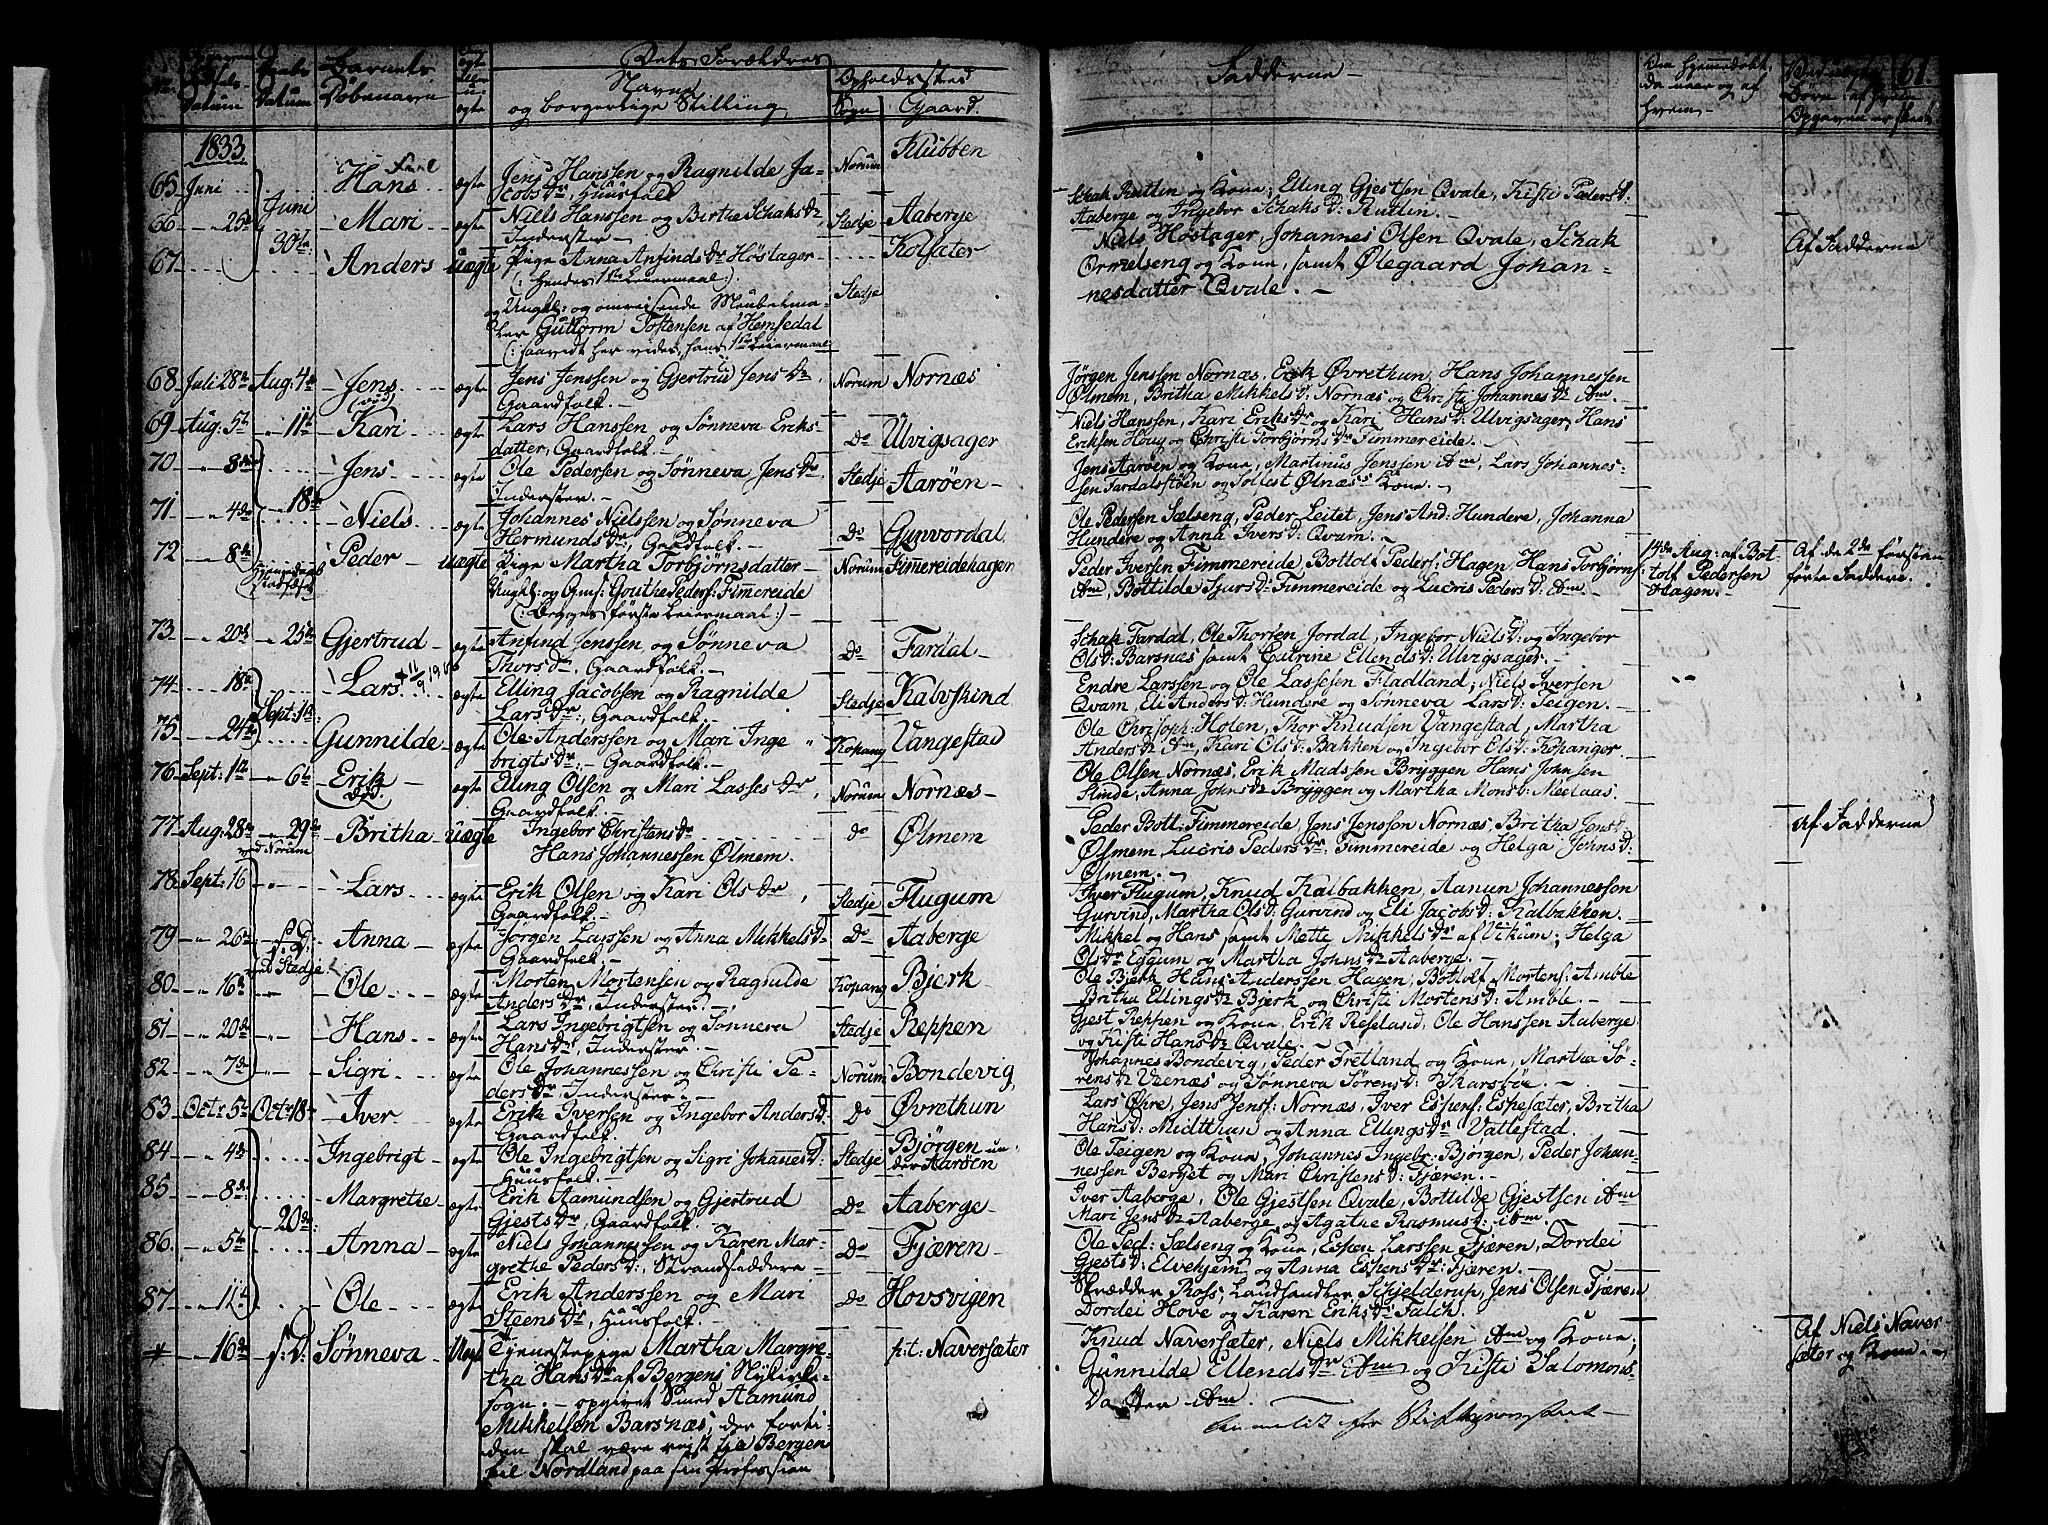 61.
Datum
Daabs Datum
Barnets Døbenavn
ægte eller u: ægte
Dets Forældres
Navne og borgerlige Stilling
Opholdssted
Sogn
Gaard.
Fadderne
Om hjemmedøbt, da naar og af hvem
Ved uægte Børn, af hvem Opgaven er skeet
1833
65 Juni Juni Hans ægte Jens Hanssen og Ragnilde Ja-
cobs Dr, Huusfolk Norum Klubben
66 - " 25de Mari ægte Niels Hanssen og Birthe Schaks Dr
Inderster Stedje Aaberge
Schak Rutlin og Kone, Elling Gjestsen Qvale, Kisti Peders D:
Aaberge og Ingebor Schaks D: Rutlin.
67 30te Anders uægte Pige Anna Anfinds Dr Høstager
(: hendes 1ste Leiermaal:)
Ungkl: og omreisende
Guttorm Tostensen af Hemsedal
(: saavidt her vides, hans 1ste Leiermaal
Kolsater
Stedje
Niels Høstager, Johannes Olsen Qvale, Schak
Ormelseng og Kone, samt Ølegaard Johan-
nesdatter Qvale.
Af Fadderne
68 Juli 28de Aug: 4de Jens ægte Jens Jenssen og Gjertrud Jens Dr,
Gaardfolk. Norum Nornæs
Jørgen Jenssen Nornæs, Erik Øvrethun, Hans Johannessen
Ølmem, Britha Mikkels D: Nornæs og Christi Johannes Dr ibm.
69 Aug: 5te - 11te Kari ægte Lars Hanssen og Sønneva Eriks
datter, Gaardfolk. Do Ulvigsager
Niels Hanssen, Kari Eriks Dr og Kari Hans D: Ulvigsager, Hans
Eriksen Houg og Christi Torbjørns Dr Fimmereide.
70 - " 8de Jens ægte Ole Pedersen og Sønneva Jens Dr
Inderster. Stedje Aarøen
Jens Aarøen og Kone, Martinus Jenssen ibm, Lars Johannes-
sen Fardalsstøen og Sollest Ølnæs's Kone.
71 - " 4de - 18de Niels ægte Johannes Nielssen og Sønneva
Hermunds Dr, Gaardfolk. Do Gunvordal
Ole Pedersen Sælseng, Peder Leitet, Jens And: Hundere, Johanna
Hundere og Anna Ivers D: Qvam.
72 - " 8de Peder uægte Pige Martha Torbjørnsdatter
Ungkl: og Gms: Gouthe Peders: Fimmereide
(: Begges første Leiermaal:)
Norum Fimmereidehagen
Peder Iversen Fimmereide, Bottolf Peders: Hagen Hans Torbjørns:
ibm, Bottilde Sjurs D: Fimmereide og Lucris Peders D: ibm.
14de Aug: af Bot-
tolf Pedersen
Hagen.
Af de 2de første an-
førte Faddere.
73 - " 20de - 25de Gjertrud ægte Anfind Jenssen og Sønneva
Thors Dr, Gaardfolk. Do Fardal
Schak Fardal, Ole Thorsen Jordal, Ingebor Niels D: og Ingebor
Ols D: Barsnæs samt Catrine Ellends D: Ulvigsager.
74 18de Lars ægte Elling Jacobsen og Ragnilde
Lars Dr, Gaardfolk. Stedje Kalvskind
Endre Larssen og Ole Lassesen Fladland, Niels Iversen
Qvam, Eli Anders D: Hundere og Sønneva Lars D: Teigen.
75 - " 24de Sept: 1ste Gunnilde ægte Ole Anderssen og Mari Inge
brigts Dr, Gaardfolk. Kopang Vangestad
Ole Christoph: Holen, Thor Knudsen Vangestad, Martha
Anders Dr ibm, Kari Ols D: Bakken og Ingebor Ols D: Kopanger.
76 Sept: 1ste " 6te Erik
død. ægte Elling Olsen og Mari Lasses Dr,
Gaardfolk. Norum Nornæs
Ole Olsen Nornæs, Erik Madssen Bryggen Hans Johnsen
Slinde, Anna Johns Dr Bryggen og Martha Mons D: Meelaas.
77 Aug: 28de - 29de
ved Norum Britha uægte Ingebor Christens Dr
Hans Johannessen Ølmem. do Ølmem
Peder Bott: Fimmereide, Jens Jenssen Nornæs, Britha Jens D:
Ølmem Lucris Peders Dr: Fimmereide og Helga Johns D:
Ølmem.
af Fadderne
78 Sept: 16 Lars ægte Erik Olsen og Kari Ols Dr,
Gaardfolk. Stedje Flugum
Iver Flugum, Knud Kalbakken, Aanun Johannessen
Gurvind, Martha Ols D: Gurvind og Eli Jacobs D: Kalbakken.
79 - " 26de s: D: Anna ægte Jørgen Larssen og Anna Mikkels D
Gaardfolk. Do Aaberge
Mikkel og Hans samt Mette Mikkels Dr af Vikum; Helga
Ols Dr Eggum og Martha Johns Dr Aaberge.
80 - " 16de ved Stedje Ole ægte Morten Mortensen og Ragnilde
Anders Dr, Inderster. Kopang Bjerk
Ole Bjerk Hans Anderssen Hagen, Bottolf Mortens: Amble
Britha Ellings Dr Bjerk og Christi Mortens D: Amble.
81 - " 20de Hans ægte Lars Ingebrigtsen og Sønneva
Hans Dr, Inderster. Stedje Reppen
Gjest Reppen og Kone, Erik Reseland, Ole Hanssen Aaberge
og Kisti Hans Dr Qvale.
82 " 7de Sigri ægte Ole Johannessen og Christi Pe-
ders Dr Inderster. Norum Bondevig
Johannes Bondevig, Peder Fretland og Kone, Martha Sø-
rens Dr Veenæs og Sønneva Sørens D: Skarsbøe.
83 Octr: 5te Octr 18 Iver ægte Erik Iversen og Ingebor Anders D:
Gaardfolk. Do Øvrethun
Lars Øhre, Jens Jens: Nornæs, Iver Espens: Espesæter, Britha
Hans D: Midtthun og Anna Ellings Dr Vallestad.
84 - " 4de Ingebrigt ægte Ole Ingebrigtsen og Sigri Johannes D:
Huusfolk. Stedje Bjørgen un-
der Aarøen
Ole Teigen og Kone, Johannes Ingebr: Bjørgen, Peder Johan-
nessen Berget og Mari Christens D: Fjæren.
85 - " 8de Margrethe ægte Erik Aamundsen og Gjertrud
Gjests Dr, Gaardfolk. Do Aaberge
Iver Aaberge, Ole Gjestsen Qvale, Bottilde Gjestsen ibm
Mari Jens Dr Aaberge og Agathe Rasmus D: ibm.
86. - " 5te 20de: Anna ægte Niels Johannessen og Karen Mar-
grethe Peders D:, Strandsiddere Do Fjæren
Ole Ped: Sælseng og Kone, Espen Larssen Fjæren, Dordei
Gjests D: Elvehjem og Anna Espens Dr Fjæren.
87 - " 11te Ole ægte Erik Anderssen og Mari
Steens Dr, Huusfolk. Do Hovsvigen
Skrædder Ross, Landhandler Schjelderup, Jens Olsen Fjæren
Dordei Hove og Karen Eriks Dr Falch.
- " 16de s: D: Sønneva Uægte Tjenestepige Martha Margre-
tha Hans Dr af Bergens Nykirke-
sogn. - opgivet Smed Aamund
Mikkelsen Barsnæs, der forti-
den skal være reist fra Bergen
til Nordland paa sin Profession
p:t: Naversæter
Knud Naversæter, Niels Mikkelsen ibm og Kone,
Gunnilde Ellends Dr ibm og Kisti Salomons-
Datter ibm.
Af Niels Naver-
sæter og Kone.